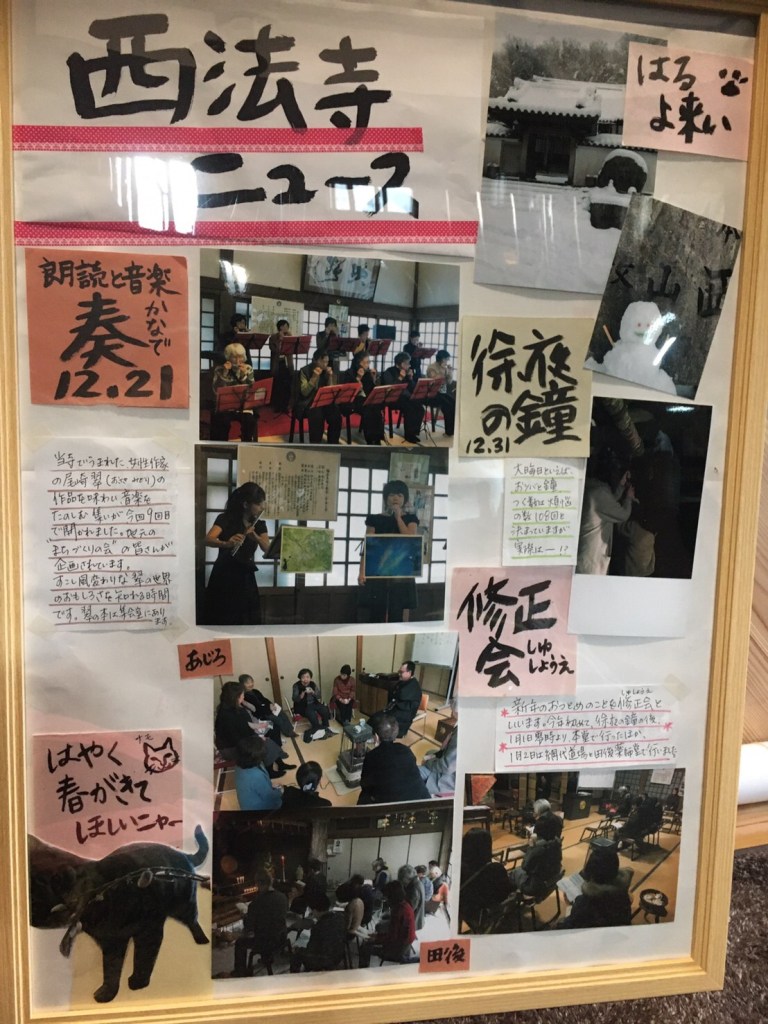 西法寺
ニュース
はる
よ来い
朗読と音楽
奏
かなで
12.21
当寺でうまれた女性作家
の尾崎翠(おさきみどり)の
作品を味わい音楽を
たのしむ集いが今回9回目
で開かれました。地元の
"まちづくりの会"の皆さんが
企画されています。
すこし風変わりな翠の世界
のおもしろさを知れる時間
です。翠の本は集会室にあり
ます。
徐夜
の鐘
12.31
大晦日といえば
おソバと鐘
つく数は煩悩
の数108回と
決まっていますが
実際は—!?
修正
会
しゅ
しょうえ
しゅしょうえ
新年のおつとめのことを修正会と
いいます。今年も
除夜の鐘の後、
1月1日零時より、本堂で行ったほか、
1月2日は網代道場と田後薬師堂で行いました
あじろ
はやく
春がきて
ほしいニャー
田後